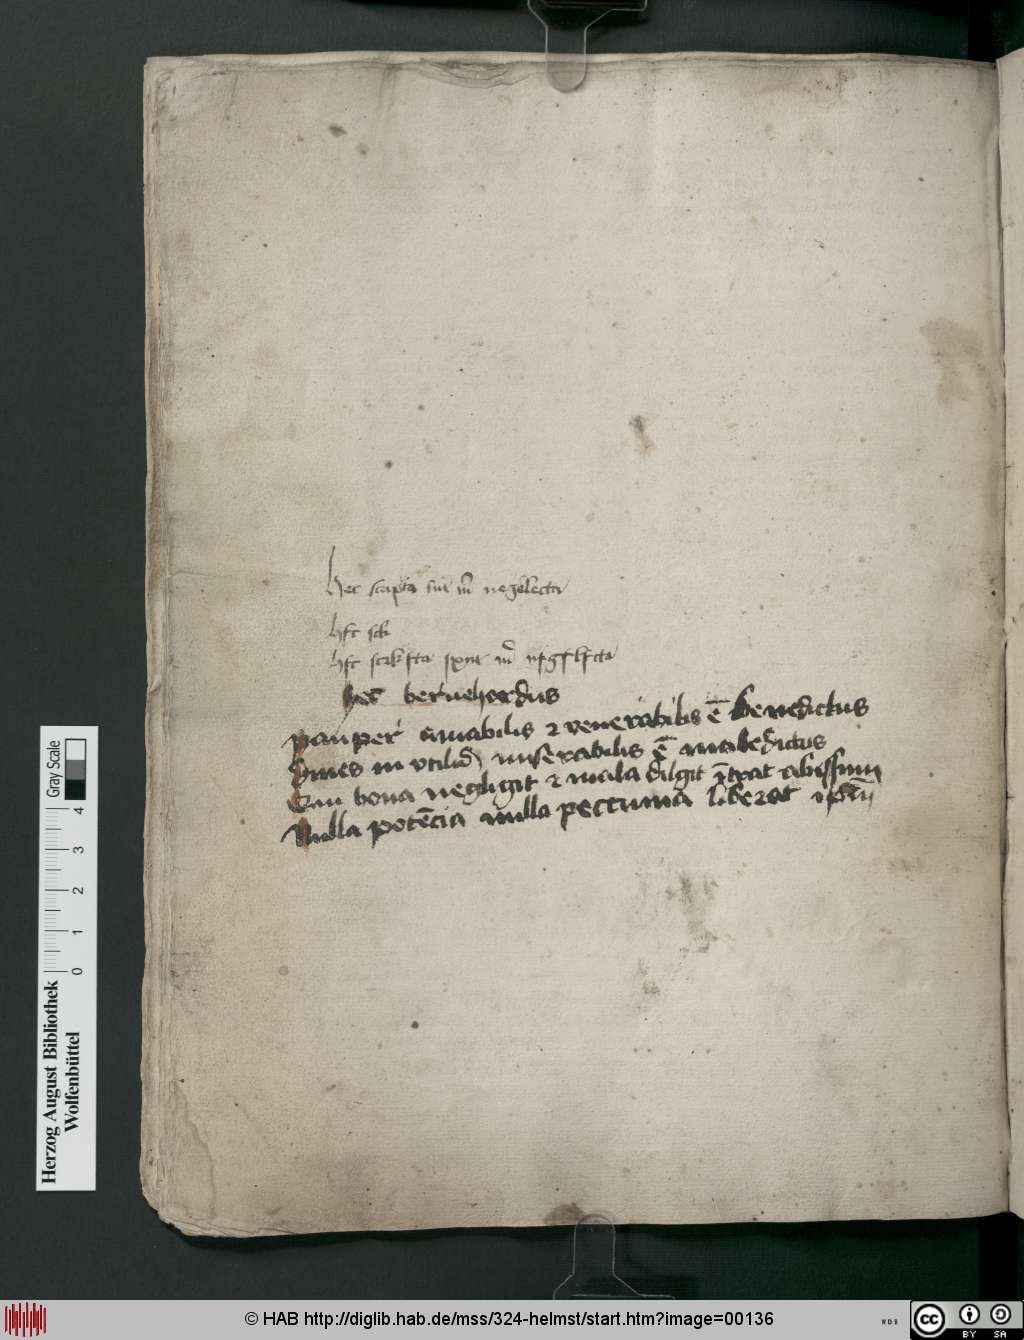 Hec scripta sūt m̄ neglecta
hfc sck
hfc scrkfta sxnt m̄ nfgflfcta
hec bernehardus
Pauper amabilis ⁊ venerabilis ē benedictus
Dives inutilis miserabilis ē maledictus
Qui bona negligit ⁊ mala diligit ītrat abissum
Nulla potēcia nulla peccunia liberat ipsū
Herzog August Bibliothek
Wolfenbüttel
0 1 2 3 4
Gray Scale
© HAB http://diglib.hab.de/mss/324-helmst/start.htm?image=00136
WDB
cc BY SA